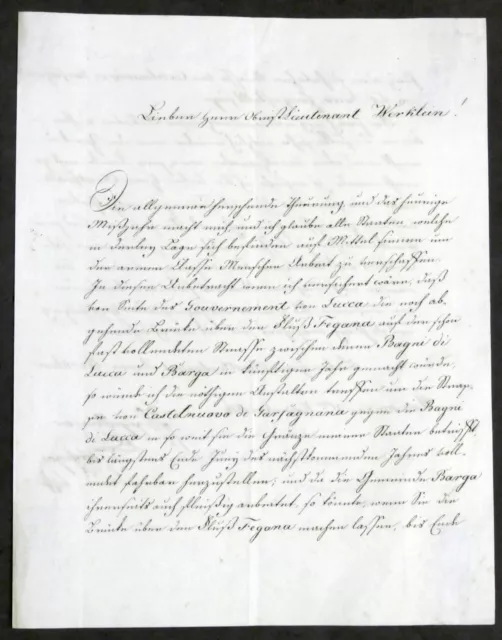 Lieber Herr Obrist Lieutenant Werklein!
Die allgemein herrschende Theuerung und das heurige
Mißjahr macht mich, und ich glaube alle Staaten, welche
in derley Lage sich befinden auf Mittel sinnen um
der armen Classe Menschen Arbeit zu verschaffen.
In diesem Anbetracht wenn ich versichert wäre, daß
von Seite des Gouvernement von Lucca die noch ab-
gehende Brücke über den Fluß Fegana auf der schon
fast vollendeten Strasse zwischen denen Bagni di
Lucca und Barga in künftigen Jahr gemacht würde,
so würde ich die nöthigen Anstalten treffen um die Stras-
se von Castelnuovo di Garfagnana gegen die Bagni
di Lucca in so weit sie die Gränze meiner Staaten betrifft,
bis längstens Ende Juny des nächstkommenden Jahres voll-
endet fahrbar herzustellen, und da die Gemeinde Barga
ihrerseits auch fleißig arbeitet, so könnte, wenn Sie die
Brücke über den Fluß Fegana machen lassen, bis Ende